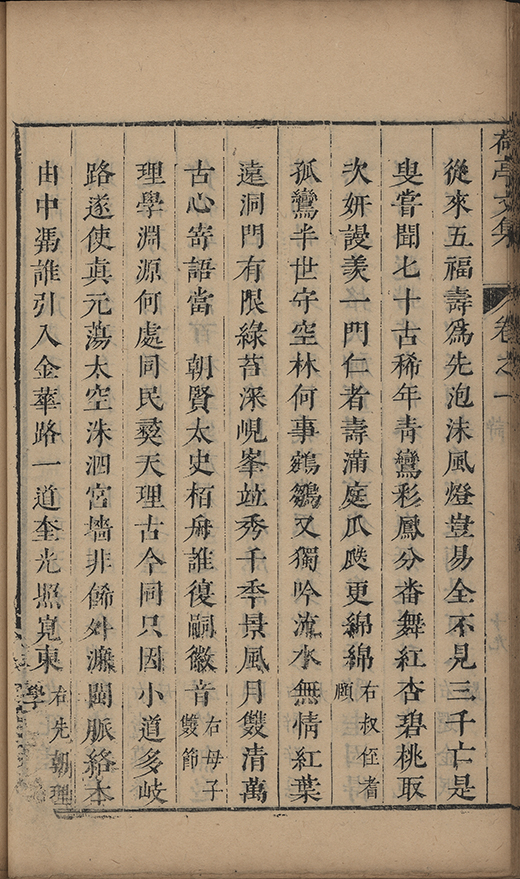 荷亭文集 卷之一
從來五福壽爲先泡沫風燈豈易全不見三千亡是
叟嘗聞七十古稀年青鸞彩鳳分畨舞紅杏碧桃取
次妍謾羡一門仁者壽滿庭瓜瓞更綿綿 右叔侄耆頤
孤鸞半世守空林何事鵷鶵又獨吟流水無情紅葉
遠洞門有限綠苔深峴峯竝秀千秊景風月雙清萬
古心寄語當 朝賢太史栢舟誰復嗣徽音 右母子雙節
理學淵源何處同民彛天理古今同只因小道多岐
路遂使真元蕩太空洙泗宮墻非餙外濂閩脉絡本
由中馮誰引入金華路一道奎光照寬東 右先朝理學